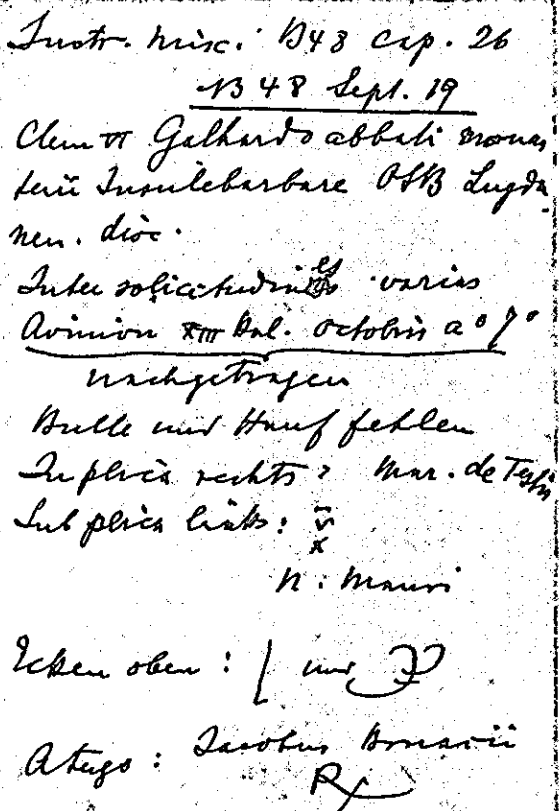 Instr. misc. 1348 cap. 26
1348 Sept. 19
Clem VI Galhardo abbati monas
terii Insulebarbare OSB Lugdu
nen. dioc.
Inter solicitudines varias
Avinion XIII Kal. octobris a° 7°
nachgetragen
Bulle und Hanf fehlen
In plica rechts: Mar. de
Sub plica links:
x
N. Mauri
Ecken oben: | und
A tergo: Jacobus
R